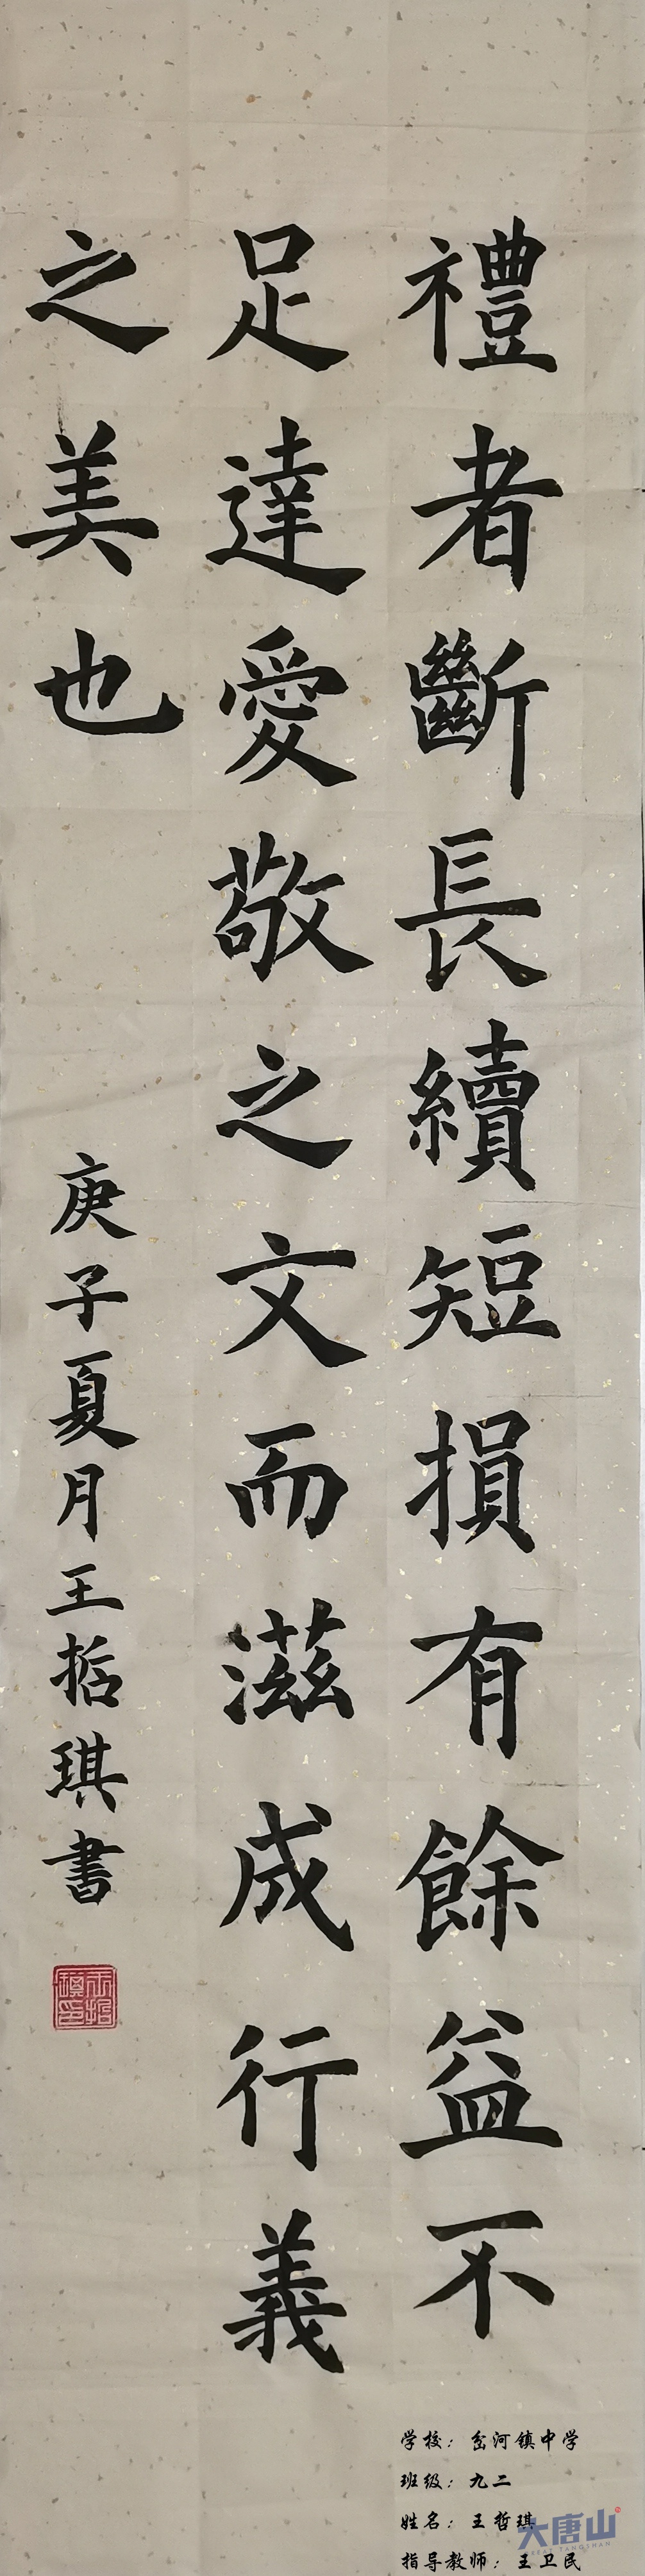 禮者斷長續短損有餘益不
足達愛敬之文而滋成行義
之美也
庚子夏月王哲琪書
学校：岔河镇中学
班级：九二
姓名：王哲琪
指导教师：王卫民
大唐山
GREAT TANGSHAN